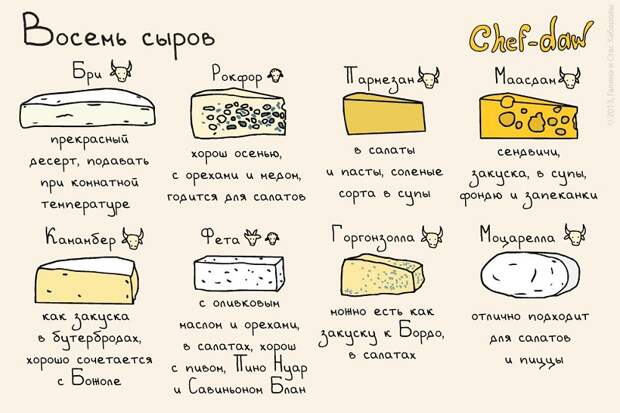 Восемь сыров
Chef-daw
Бри
прекрасный
десерт, подавать
при комнатной
температуре
Рокфор
хорош осенью,
с орехами и медом,
годится для салатов
Пармезан
в салаты
и пасты, соленые
сорта в супы
Маасдам
сендвичи,
закуска, в супы,
фондю и запеканки
Камамбер
как закуска
в бутербродах,
хорошо сочетается
с Божоле
Фета
с оливковым
маслом и орехами,
в салатах, хорош
с пивом, Пино Нуар
и Савиньоном Блан
Горгонзолла
можно есть как
закуску к Бордо,
в салатах
Моцарелла
отлично подходит
для салатов
и пиццы
© 2013, Галина и Стас Хабаровы